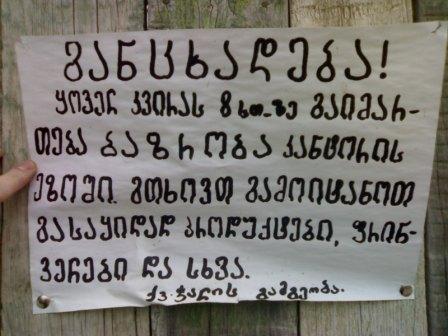 განცხადება!
ყოველ კვირას 8 სთ-ზე გაიმარ-
თება ბაზრობა კანტორის
ეზოში. გთხოვთ გამოიტანოთ
გასაყიდად პროდუქტები, ფრინ-
ველები და სხვა.
ქვ. ჭალის გამგეობა.